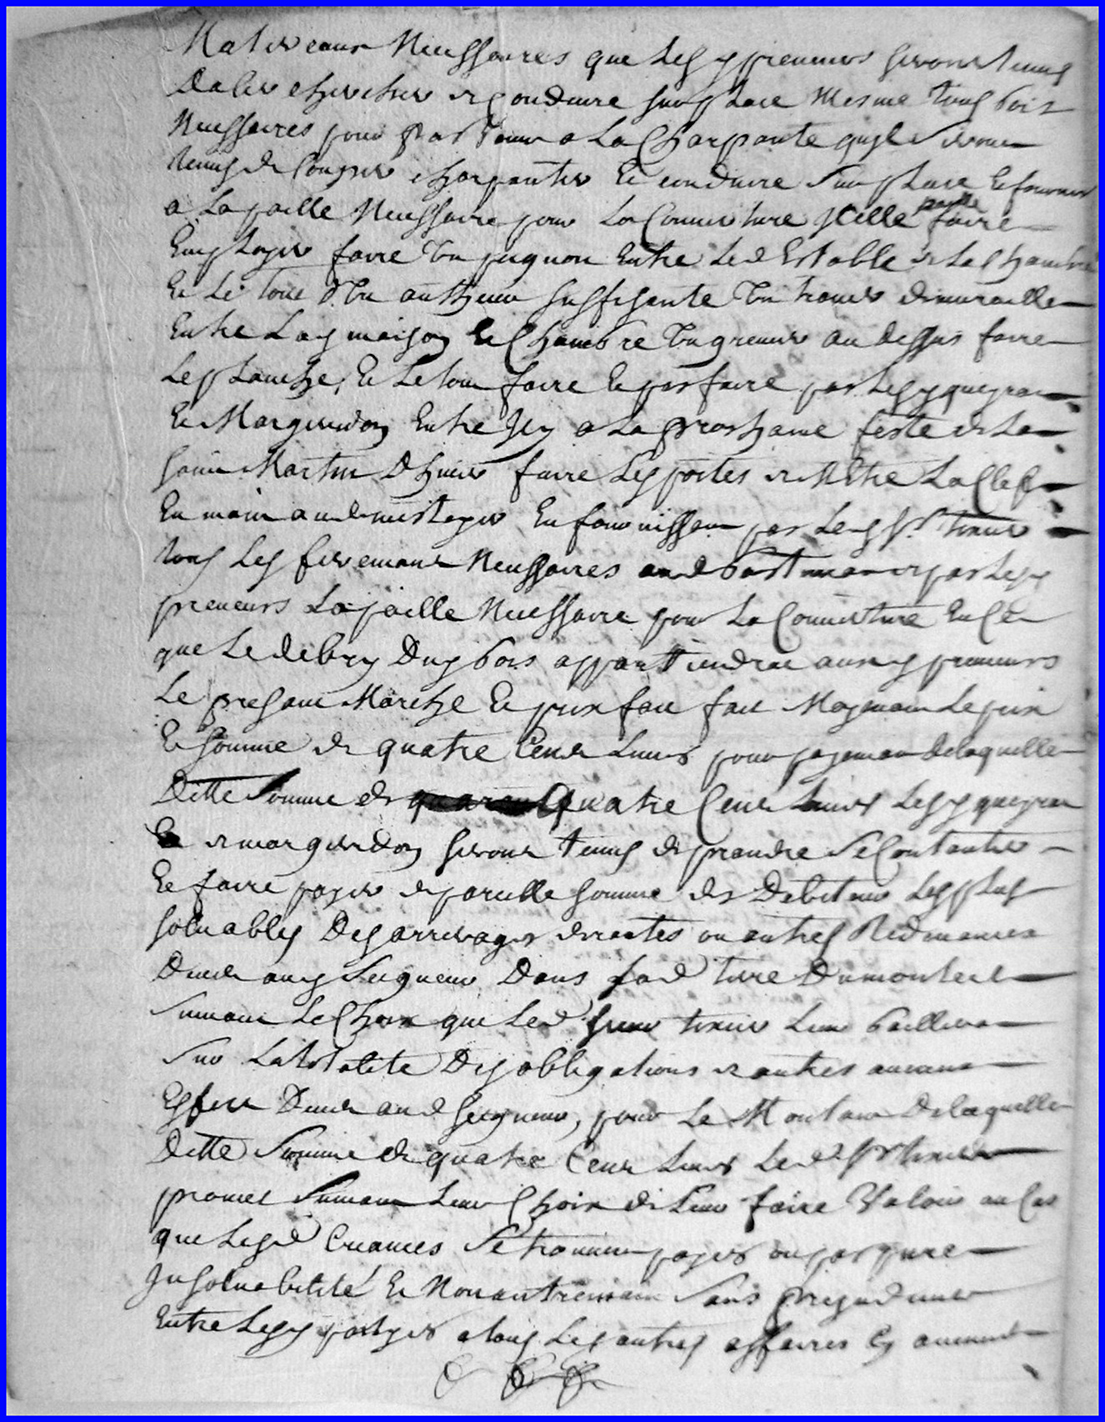 Matereaux Neussaires que lesd preneurs seront tenus
Daler chercher et conduire sur place mesme tous bois
Neussaires pour la Charpante quyls seront
tenus de Couper charpanter Et conduire sur place Et fournir
a La paille Neussaire pour La Couverture Jcelle paille faire
Employer faire Un pugnon Entre Led Estable et La chambre
Et Le tout D'Un autheur suffisante Un travers de muraille
Entre Lad maison Et Chambre Un grenier au dessus faire
Le planche, Et Le tout faire Et parfaire par Lesd queyrau
Et Marguerdon Entre Jcy a La prochaine feste de La
saint Martin Dhiver faire Les portes et Metre La Clef
En main au de mestayer En fournissan par Led Sr tixier
tous Les ferremant Neussaires par Lesd
preneurs La paille Neussaire pour La Couverture En Ce
que Le debry Dud bois appartiendra ausd preneurs
Le presant Marche Et prix fait fait Moyenant Le prix
Et somme de quatre Cent Livres pour payeman de laquelle
Ditte Somme de Quatre Cent Livres Lesd queyrau
et marguerdon seront tenus de prandre Se Contanter
Et faire payer de pareille somme des Debiteur Les plus
soluables Des arrerages de rantes ou autres Redevances
Deues aud Seigneur Dans sad terre Dumonteil
Suivant Le Choix que Led sieur tixier Leur baillera
Sur La totalite Des obligations et autres
Effets Deues aud seigneur, pour Le Montant De laquelle
Ditte Somme de quatre Cent Livres Led Sr tixier
promet Suivant Leur Choix de Leur faire Valoir au Cas
que Lesd Creances Se trouvent payes ou par pure
Jnsoluabilité Et Non autrement Sans prejudicier
Entre Lesd partyes a tous Les autres affaires